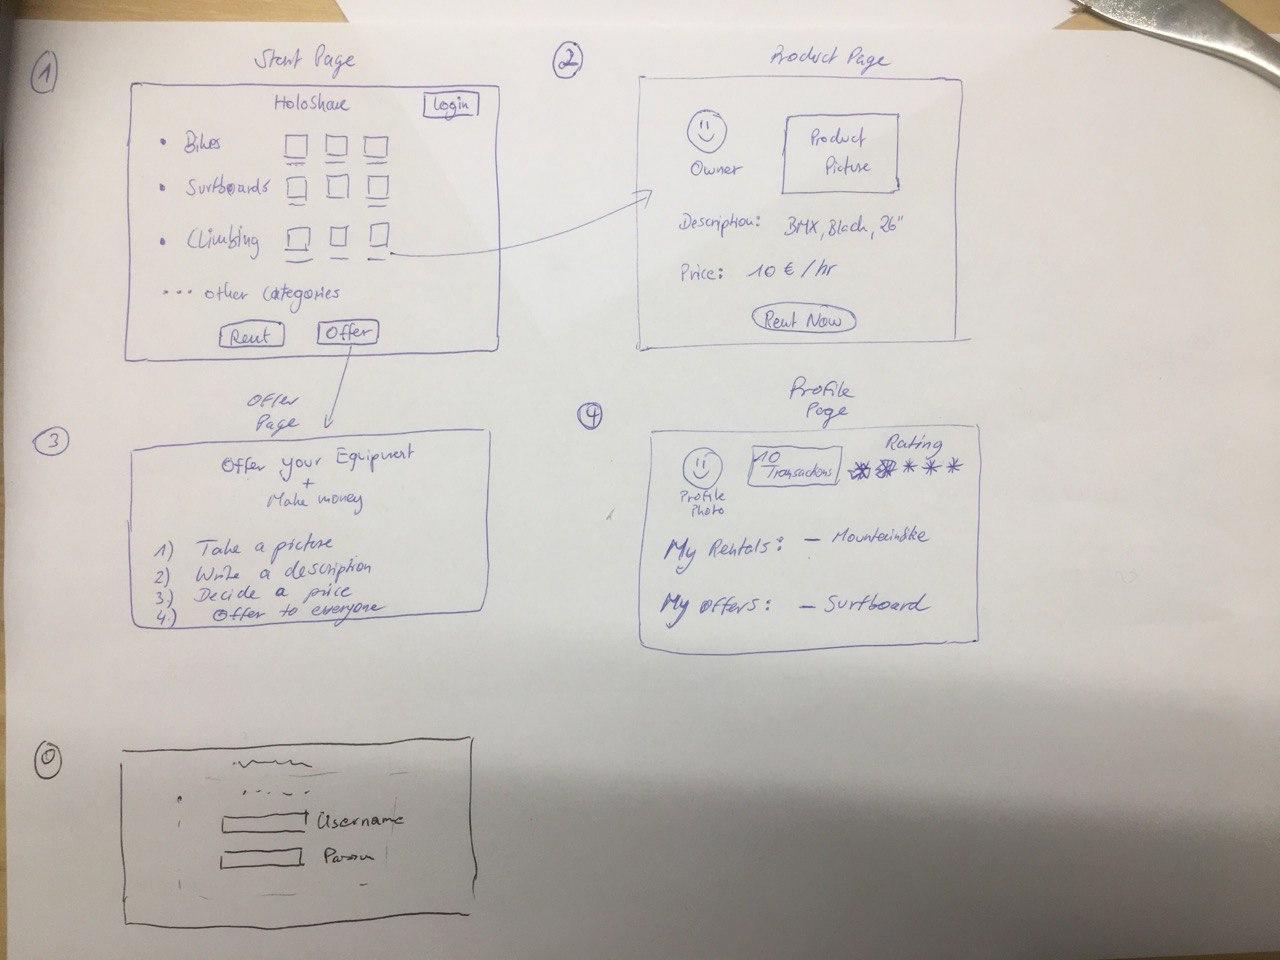 1
Start Page
Holoshare
Login
• Bikes
• Surfboards
• Climbing
... other categories
Rent
Offer
2
Product Page
Owner
Product
Picture
Description: BMX, Black, 26"
Price: 10 € / hr
Rent Now
3
Offer
Page
Offer your Equipment
+
Make money
1) Take a picture
2) Write a description
3) Decide a price
4) Offer to everyone
4
Profile
Page
Profile
Photo
10
Transactions
Rating
My Rentals: – Mountainbike
My offers: – Surfboard
0
Username